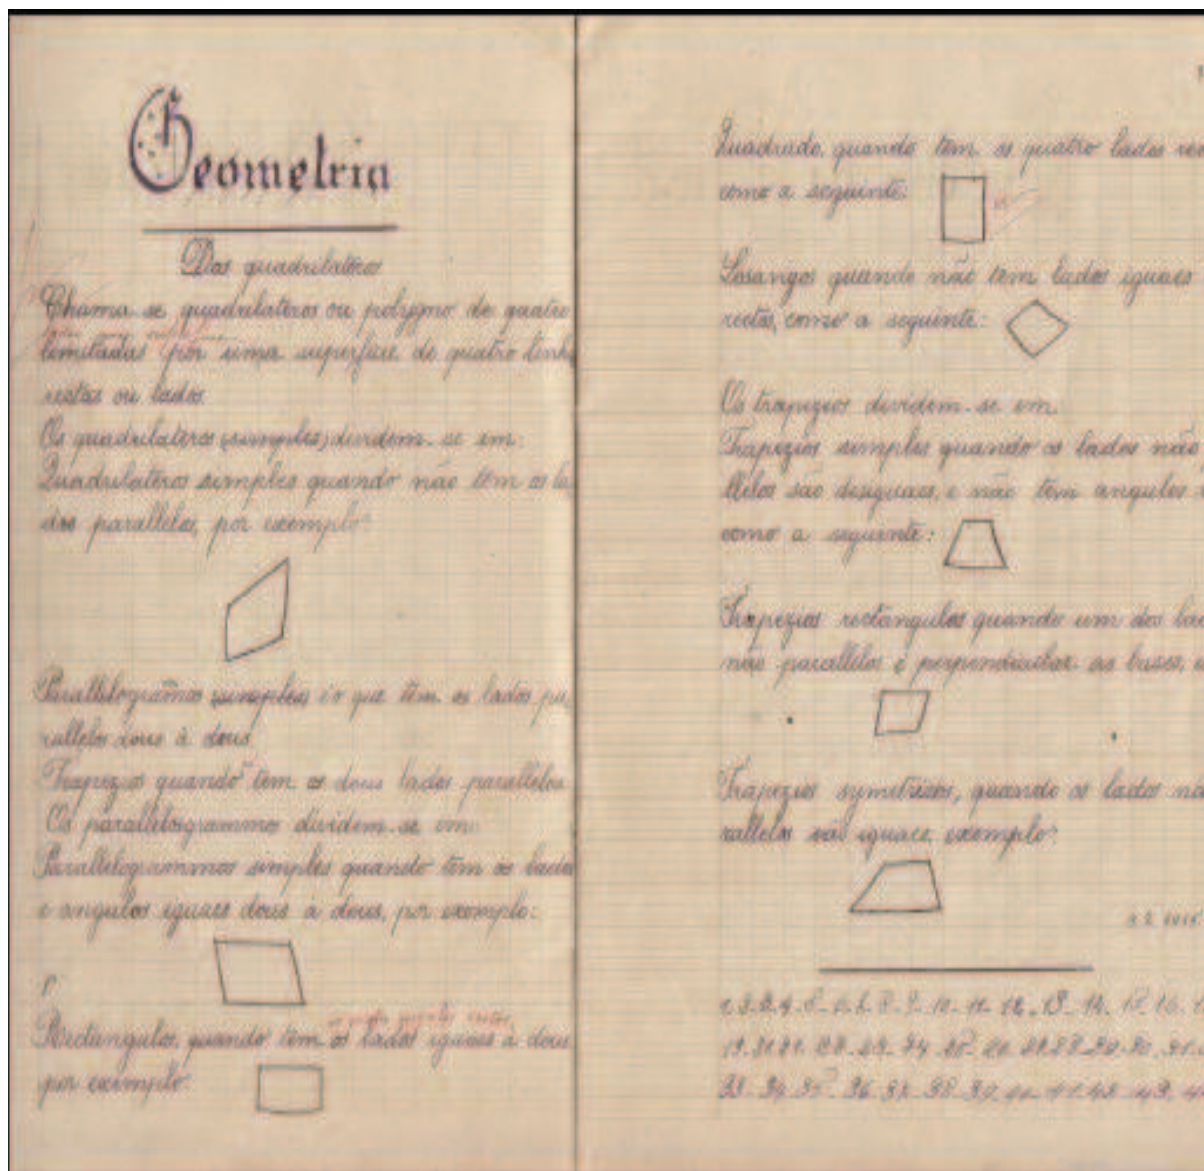 Geometria
Dos quadrilateros
Chama-se quadrilateros ou polygno de quatro
limitadas por uma superficie de quatro linh
rectas ou lados.
Os quadrilateros (simples) dividem-se em:
Quadrilateros simples quando não têm os la
dos parallelos, por exemplo:
Parallelogrammos simples é o que têm os lados pa
rallelos dous à dous.
Trapezios quando têm os dous lados parallelos
Os parallelogrammos dividem-se em:
Parallelogrammos simples quando têm os lados
e angulos iguaes dous à dous, por exemplo:
Rectangulos, quando têm os lados iguaes à dous
por exemplo:
Quadrado, quando têm os quatro lados
como a seguinte:
Losangos quando não tem lados iguaes
rectos, como a seguinte:
Os trapezios dividem-se em
Trapezios simples quando os lados não
llelos são desiguaes, e não tem angulos
como a seguinte:
Trapezios rectangulos quando um dos lad
não parallelos é perpendicular as bases,
Trapezios symetricos, quando os lados nã
rallelos são iguaes, exemplo:
10. 11. 12. 13. 14. 15. 16.
33. 34. 35. 36. 37. 38. 39.